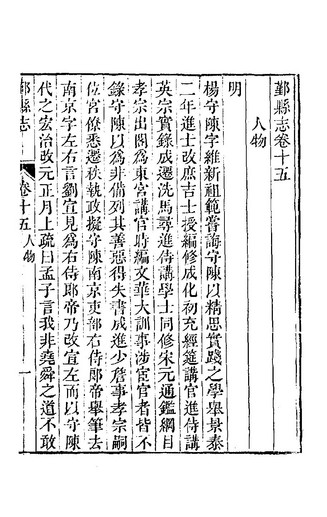 鄞縣志卷十五
人物
明
楊守陳字維新祖範嘗誨守陳以精思實踐之學舉景泰
二年進士改庶吉士授編修成化初充經筵講官進侍講
英宗實錄成遷洗馬尋進侍講學士同修宋元通鑑綱目
孝宗出閣為東宮講官時編文華大訓事涉宦官者皆不
錄守陳以為非備列其善惡得失書成進少詹事孝宗嗣
位宮僚悉遷秩執政擬守陳南京吏部右侍郎帝舉筆去
南京字左右言劉宣見為右侍郎帝乃改宣左而以守陳
代之宏治改元正月上疏曰孟子言我非堯舜之道不敢
鄞縣志
卷十五 人物
一